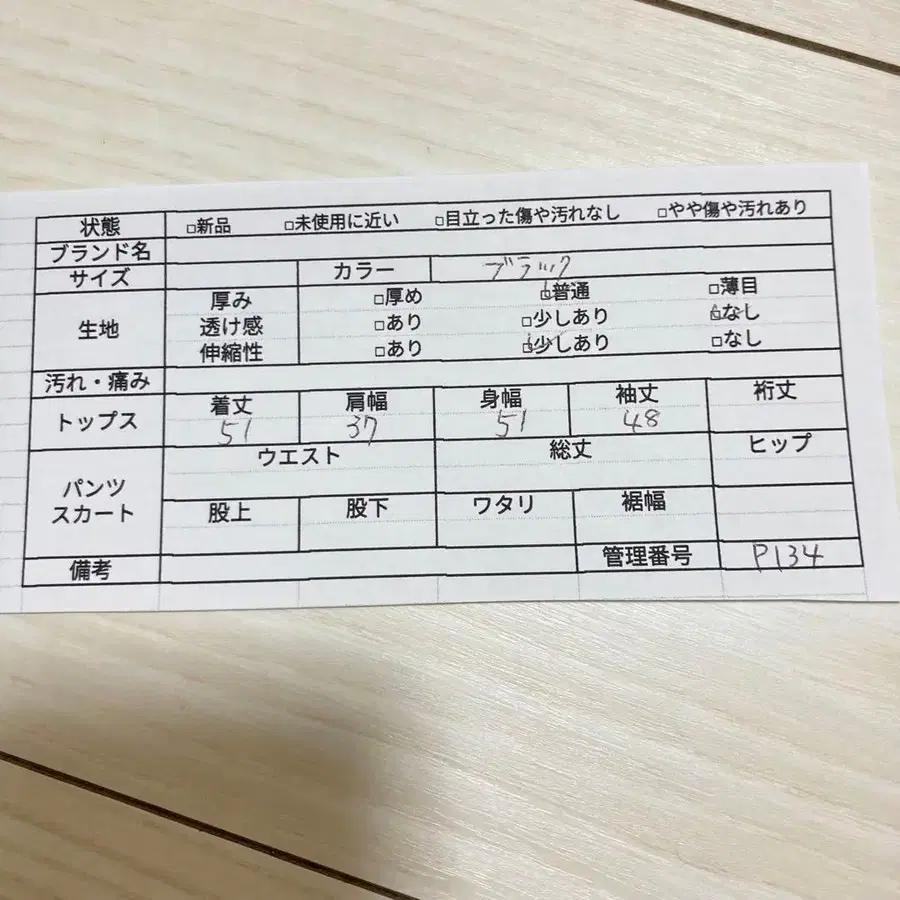 状態 □新品 □未使用に近い □目立った傷や汚れなし □やや傷や汚れあり
ブランド名
サイズ カラー ブラック
生地 厚み □厚め □普通 □薄目
透け感 □あり □少しあり □なし
伸縮性 □あり □少しあり □なし
汚れ・痛み
トップス 着丈 肩幅 身幅 袖丈 裄丈
51 37 51 48
パンツ スカート ウエスト 総丈 ヒップ
股上 股下 ワタリ 裾幅
備考 管理番号 P134